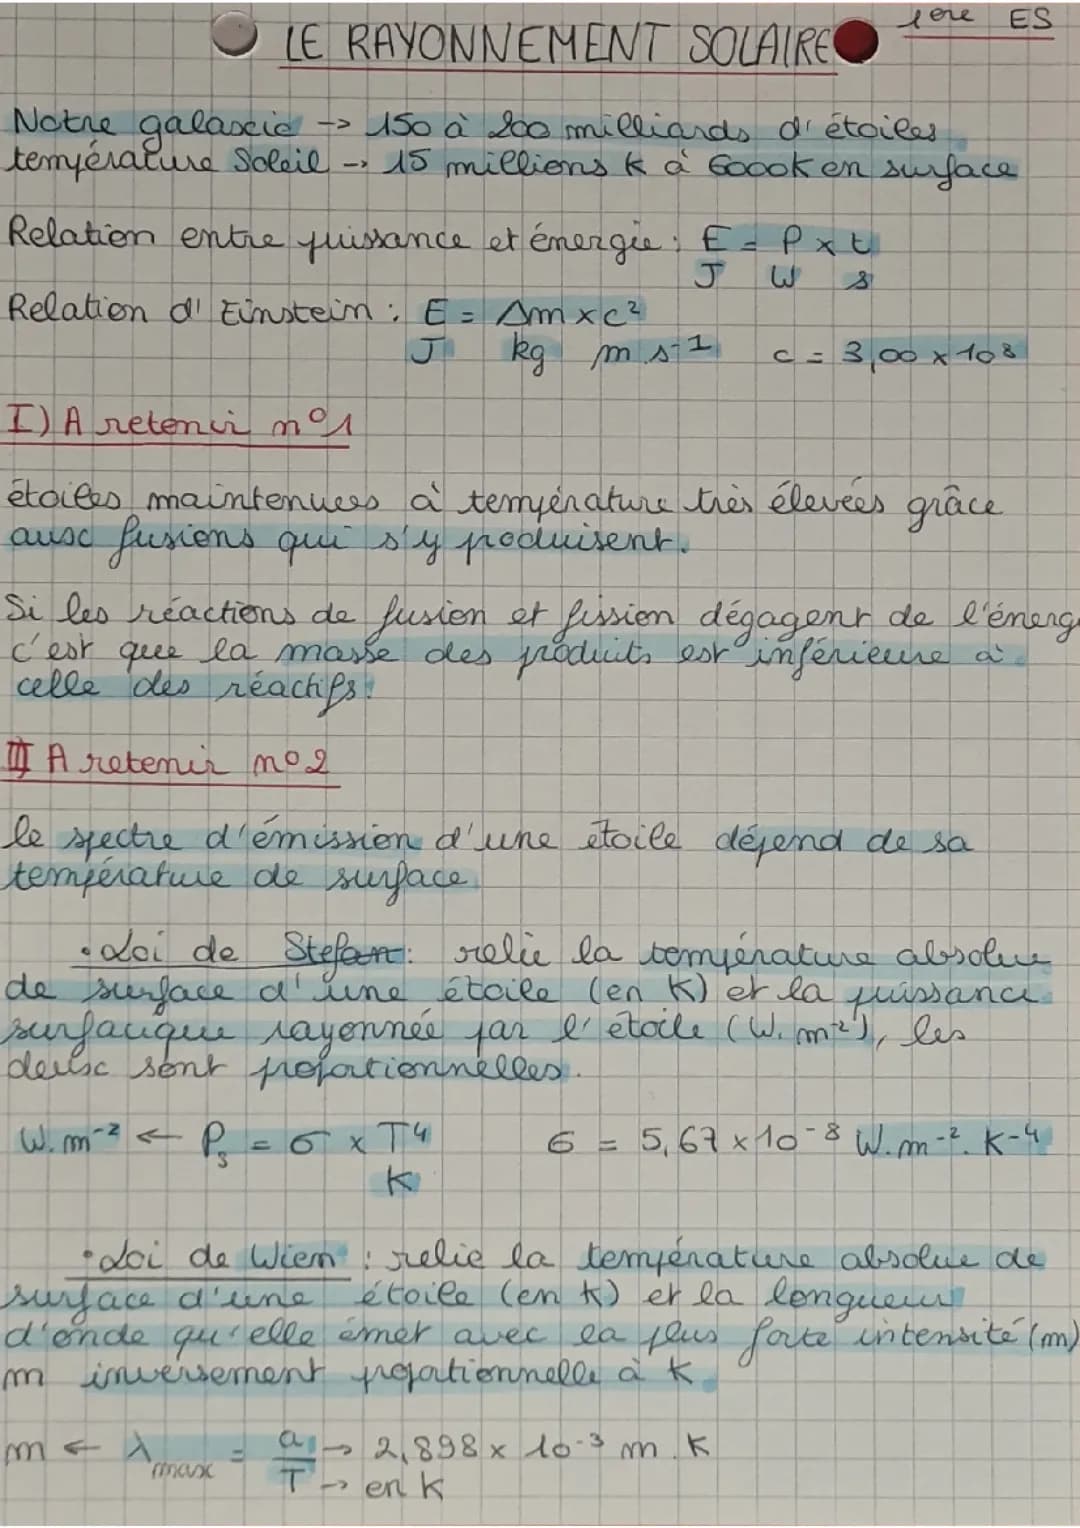 1ere ES
LE RAYONNEMENT SOLAIRE
Notre galaxie -> 150 à 200 milliards d'étoiles
température Soleil -> 15 millions K à 6000K en surface
Relation entre puissance et énergie : E = P x t
J W s
Relation d'Einstein : E = Δm x c²
J kg m.s-1 c = 3,00 x 10 8
I) A retenir n°1
étoiles maintenues à température très élevées grâce
aux fusions qui s'y produisent.
Si les réactions de fusion et fission dégagent de l'énerg
c'est que la masse des produits est inférieure à
celle des réactifs.
II A retenir n°2
le spectre d'émission d'une étoile dépend de sa
température de surface
• Loi de Stefan : relie la température absolue
de surface d'une étoile (en K) et la puissance
surfacique rayonnée par l'étoile (W.m-2), les
deux sont proportionnelles.
W.m-2 <- Ps = σ x T4 σ = 5,67 x 10-8 W.m-2.K-4
K
• Loi de Wien : relie la température absolue de
surface d'une étoile (en K) et la longueur
d'onde qu'elle émet avec la plus forte intensité (m)
m inversement proportionnelle à K
m <- λmax = a/T -> 2,898 x 10-3 m.K
-> en K